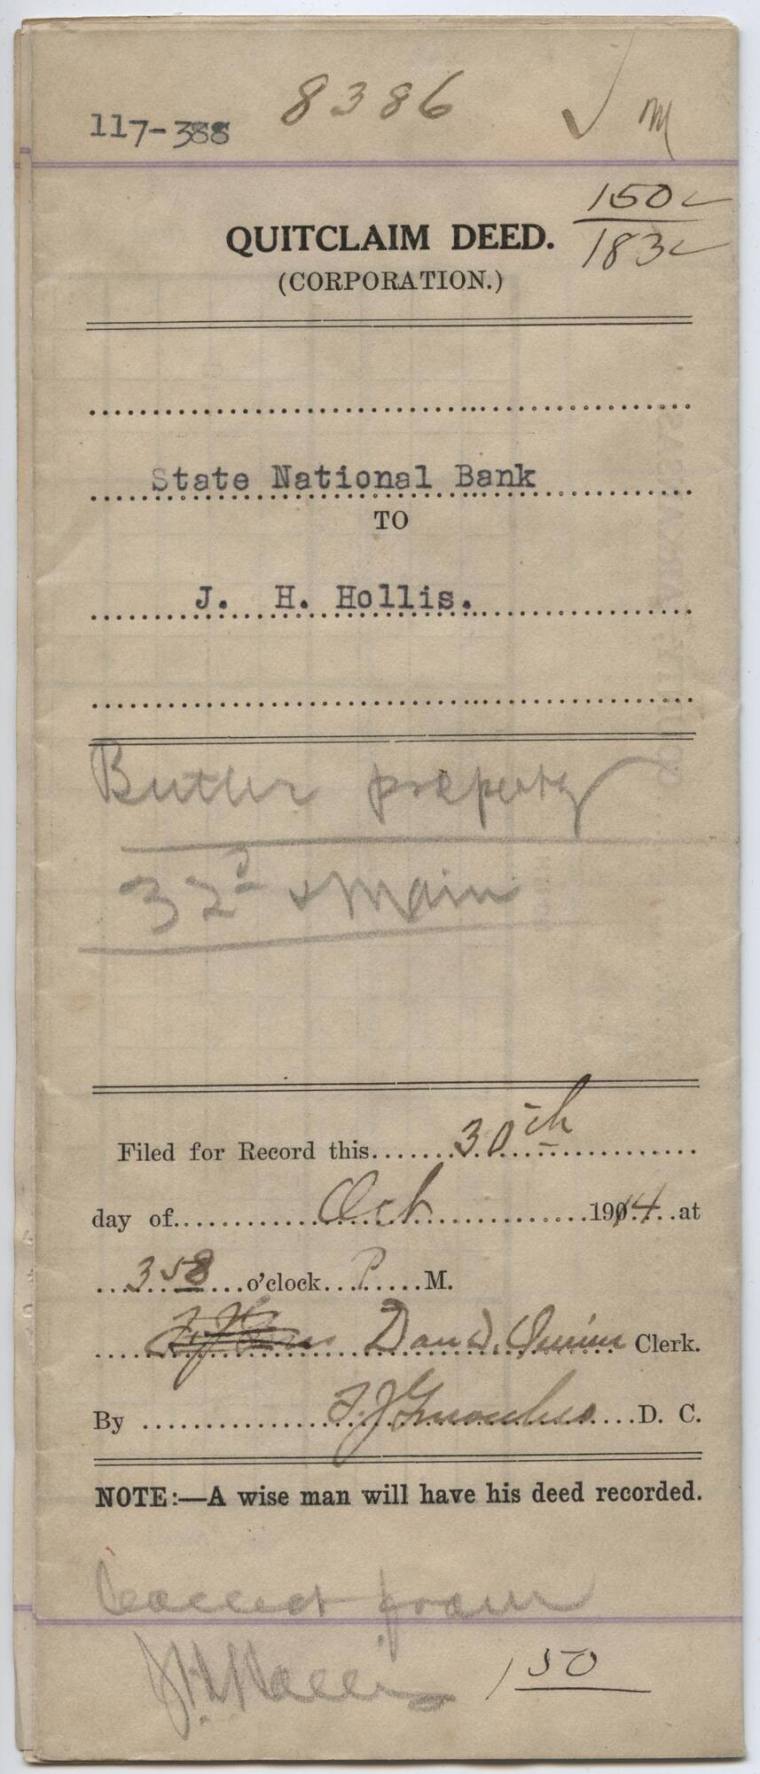 8386 ✓ m
117-388
150
QUITCLAIM DEED. 183
(CORPORATION.)
State National Bank
TO
J. H. Hollis.
Butler property
32d & Main
Filed for Record this 30th
day of Oct 1914 at
3 58 o'clock P M.
Dan D. Quinn Clerk.
By F. J. D. C.
NOTE:—A wise man will have his deed recorded.
Collect from
J H Hollis 1 50